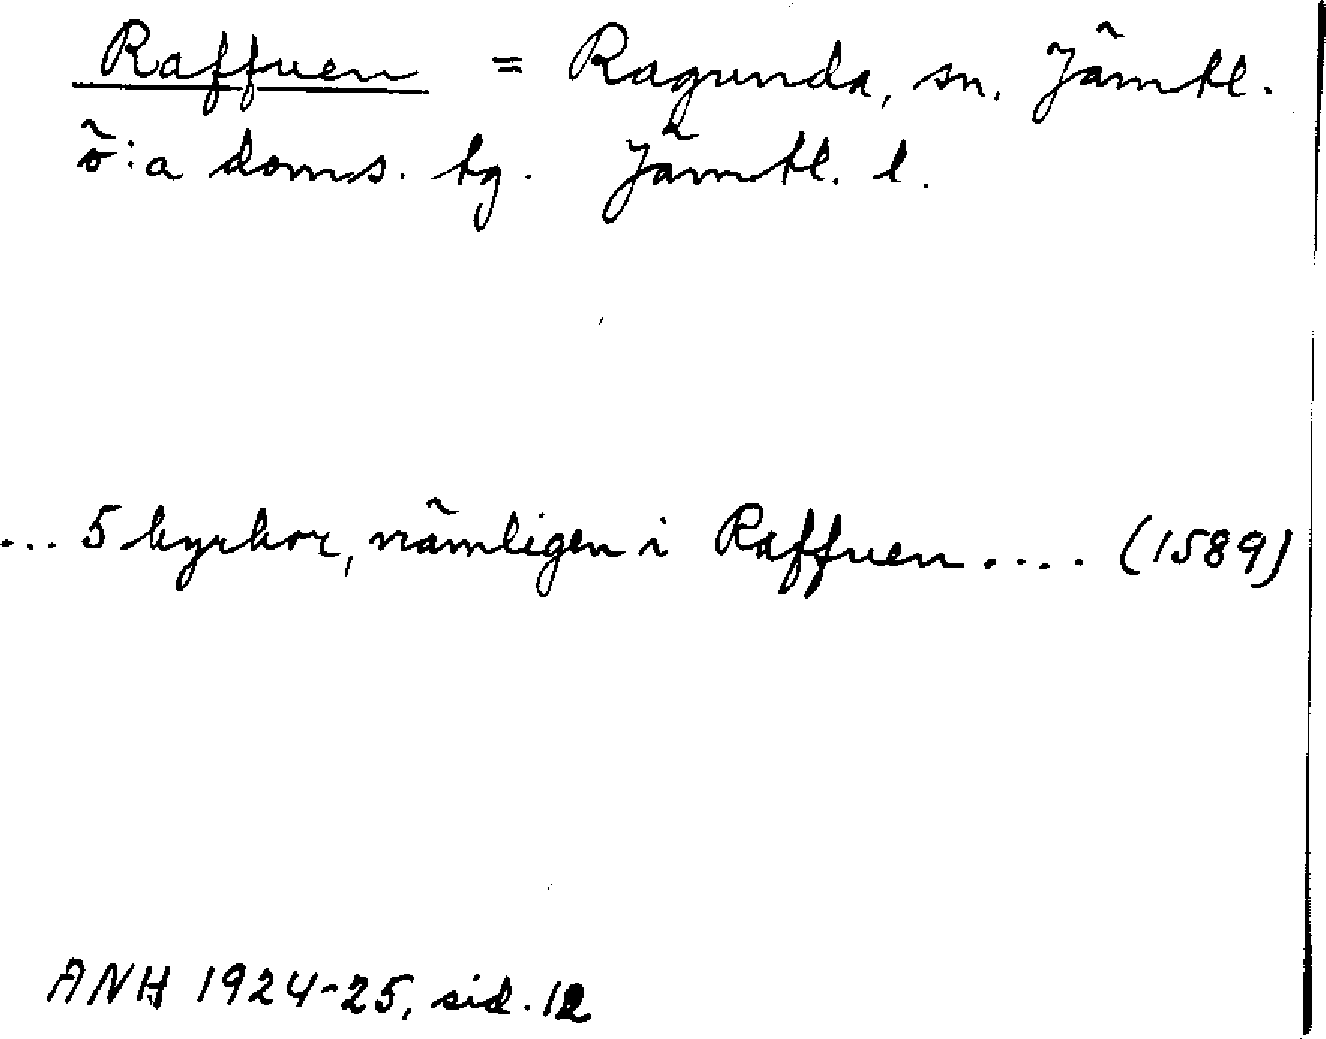 Raffuen = Ragunda, sn. Jämtl.
ö:a doms. tg. Jämtl. l.
... 5 kyrkor, nämligen i Raffuen .... (1589)
ANH 1924-25, sid. 12